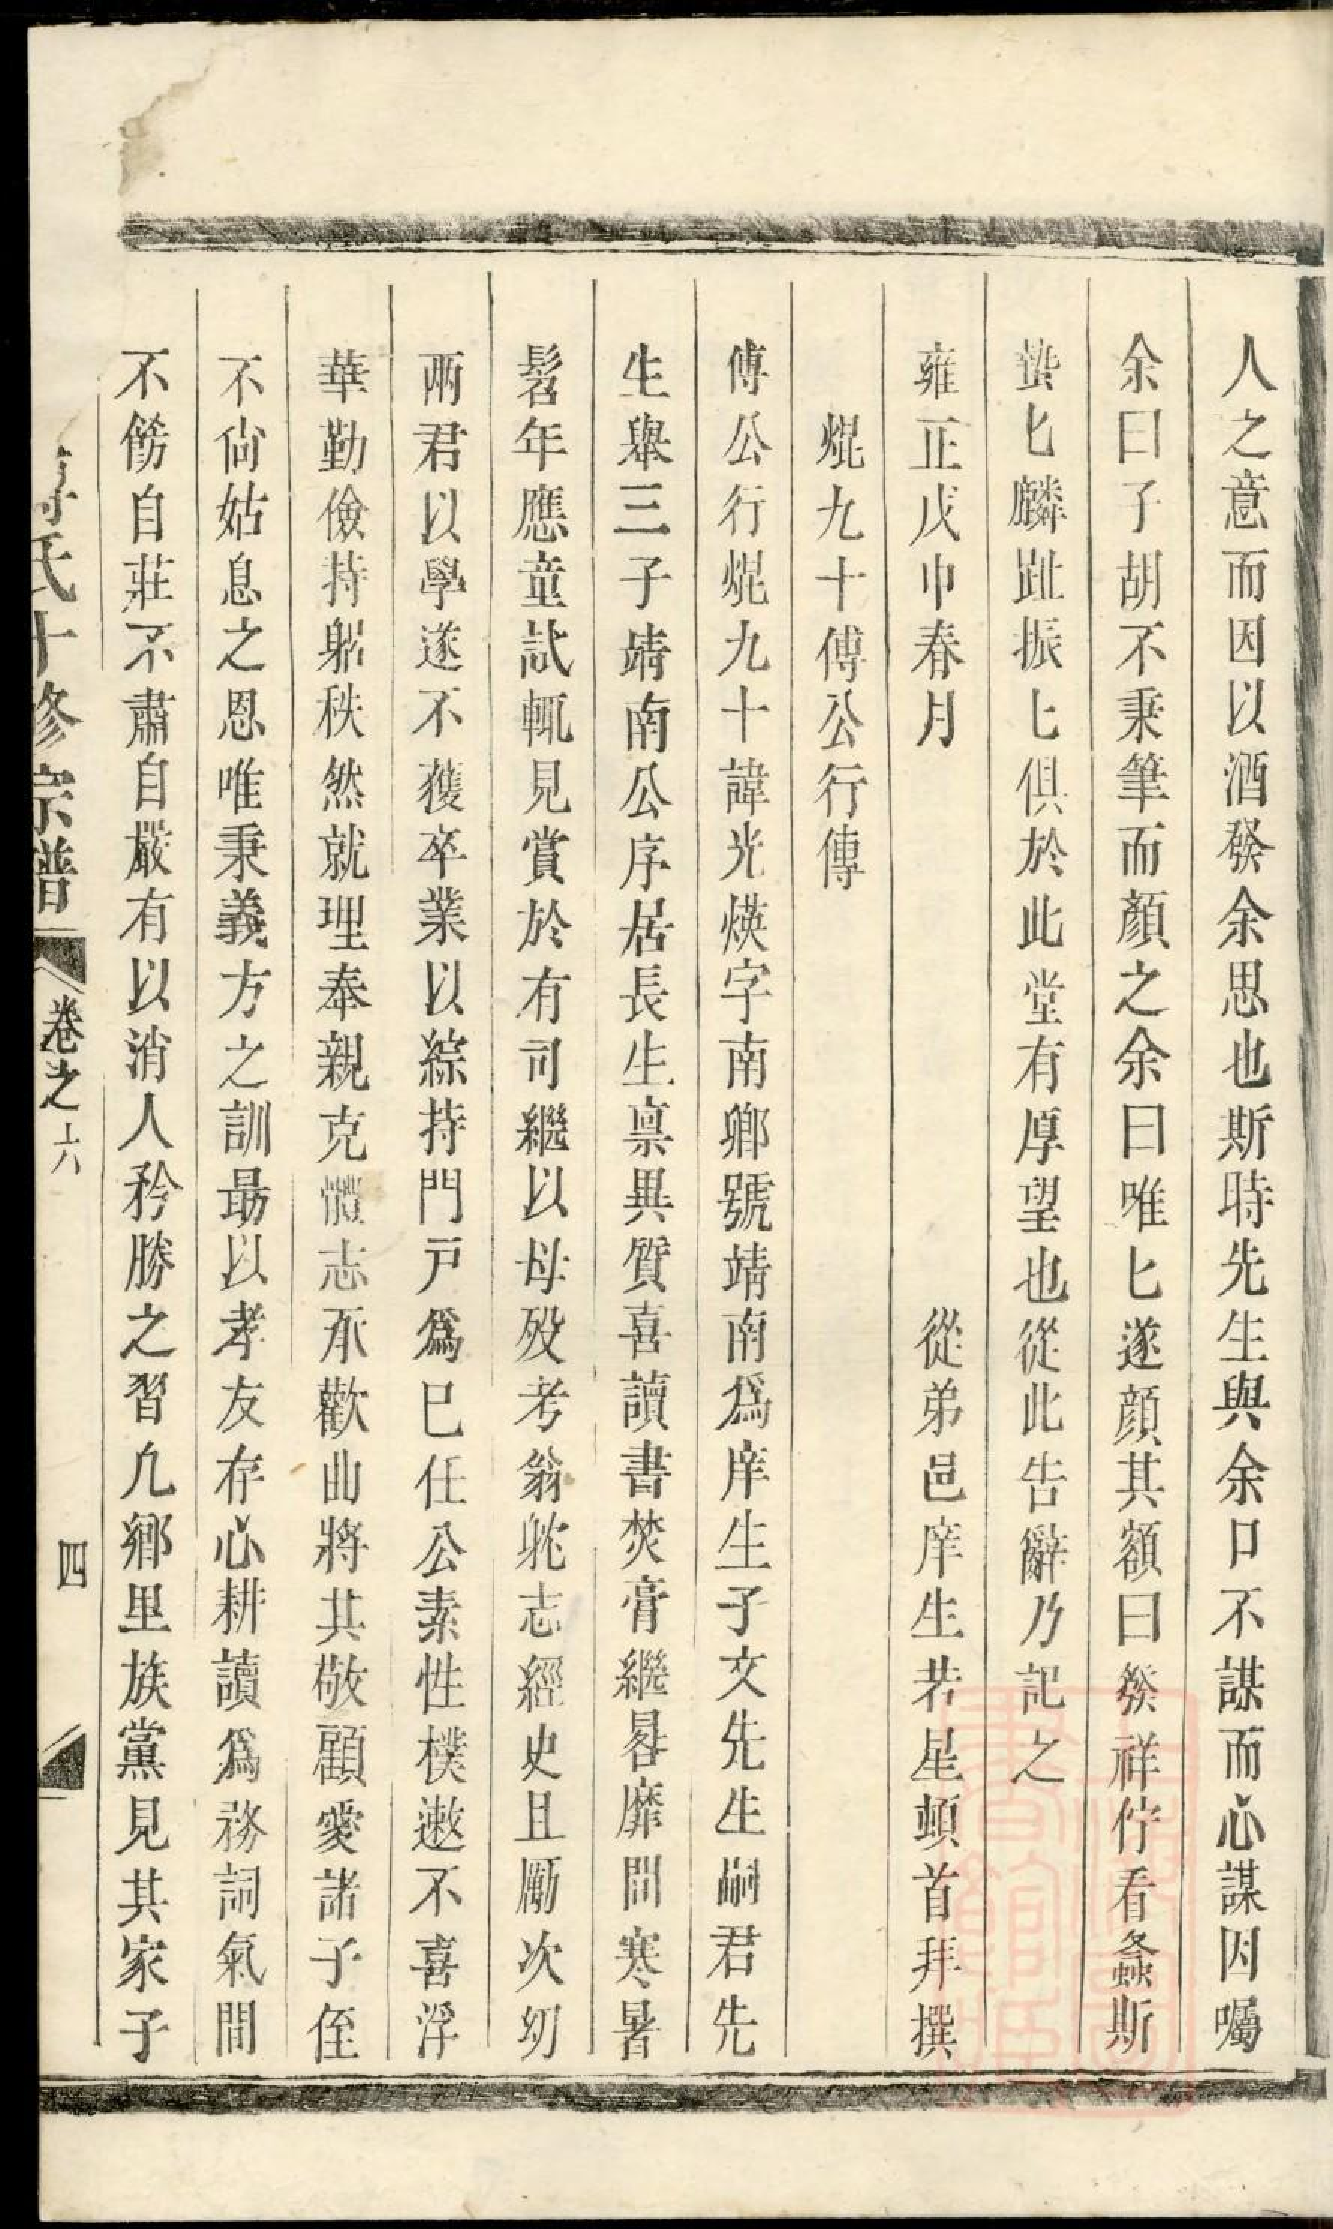 人之意而因以酒發余思也斯時先生與余口不謀而心謀因囑
余曰子胡不秉筆而顏之余曰唯匕遂顏其額曰發祥佇看螽斯
蟄匕麟趾振匕俱於此堂有厚望也從此告辭乃記之
雍正戊申春月 從弟邑庠生若星頓首拜撰
焜九十傅公行傳
傅公行焜九十諱光煐字南鄉號靖南爲庠生子文先生嗣君先
生舉三子靖南公序居長生稟異質喜讀書焚膏繼晷靡間寒暑
髫年應童試輒見賞於有司繼以母歿考翁眈志經史且勵次切
兩君以學遂不獲卒業以綜持門戸爲巳任公素性樸遬不喜浮
華勤儉持躬秩然就理奉親克體志承歡曲將其敬顧愛諸子侄
不尙姑息之恩唯秉義方之訓最以孝友存心耕讀爲務詞氣間
不飭自莊不肅自嚴有以消人矜勝之習凢鄉里族黨見其家子
氏十修宗譜 卷之六 四